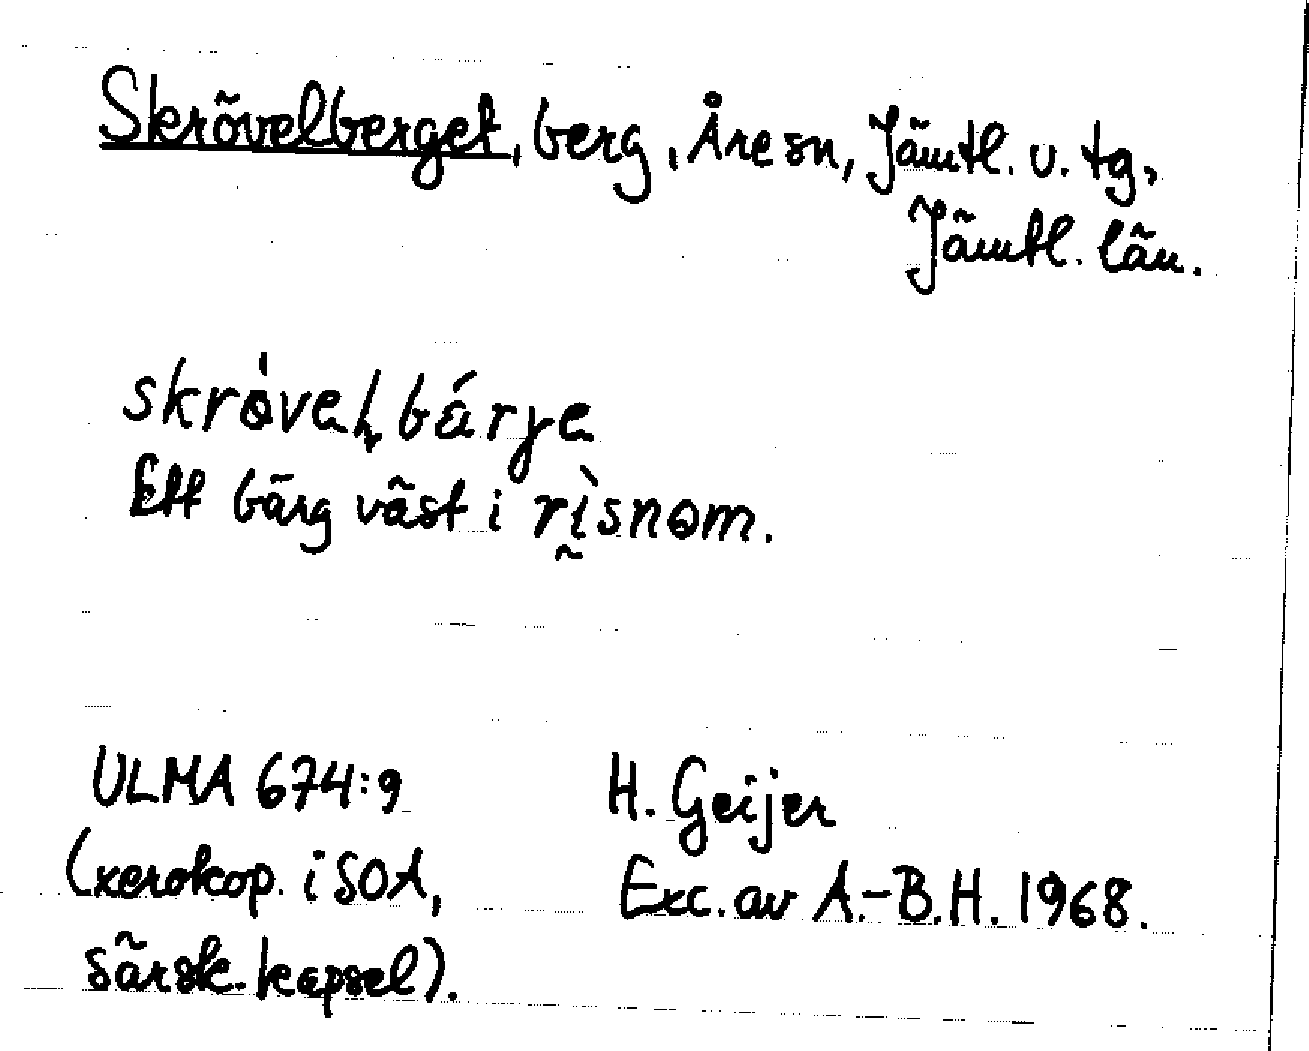 Skrövelberget, berg, Åre sn, Jämtl. v. tg,
Jämtl. län.
Ett bärg väst i
ULMA 674:9
H. Geijer
(xerokop. i SOA,
Exc. av A.-B.H. 1968.
särsk. kapsel).